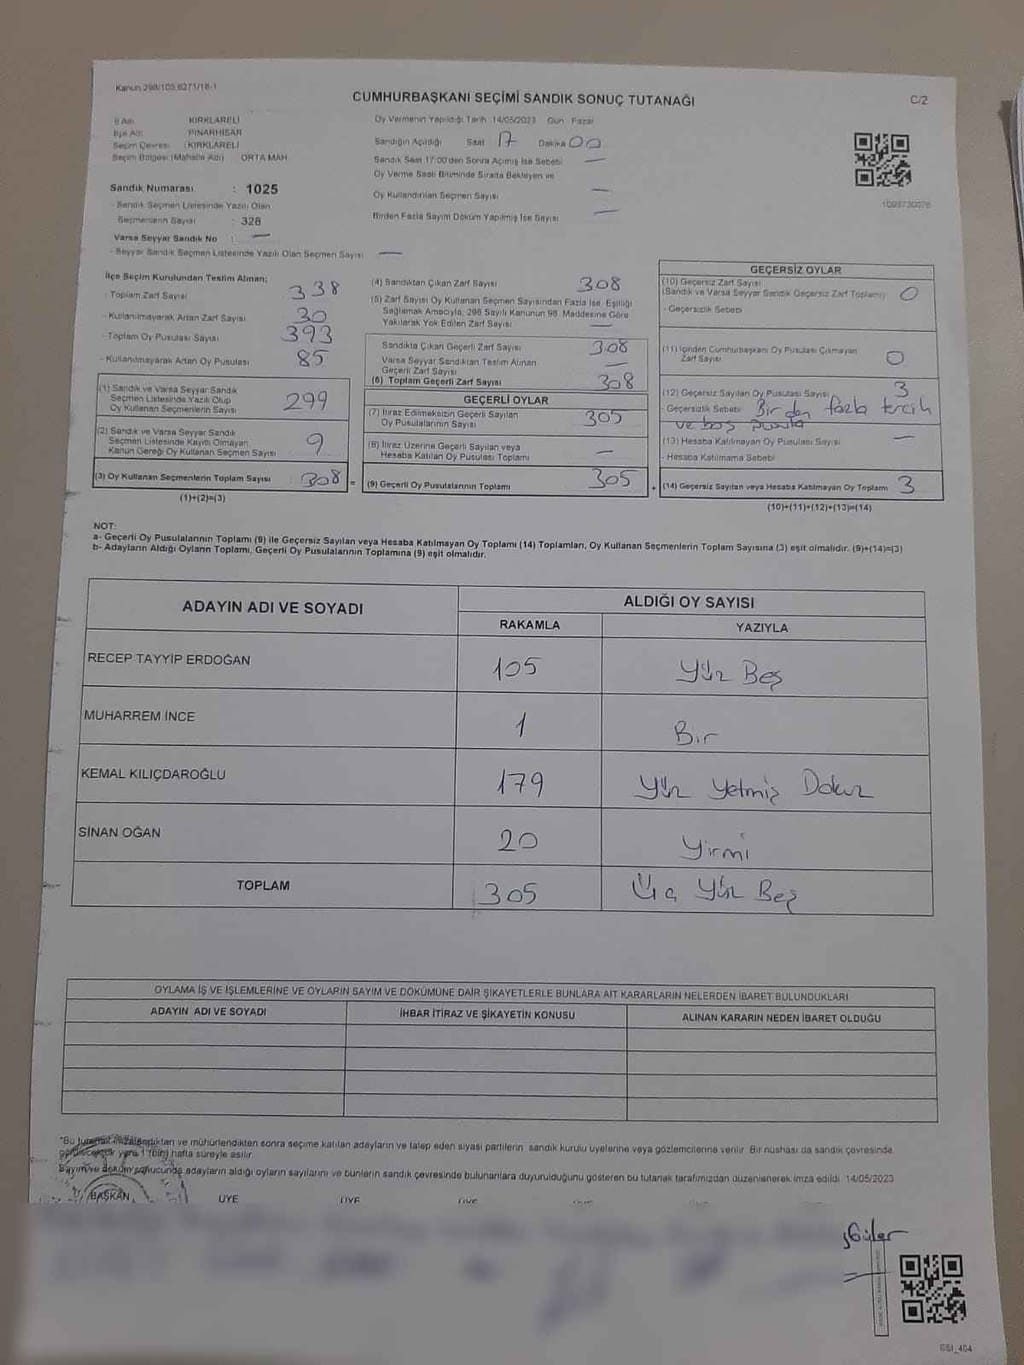 Kanun 298/105,6271/18-1
CUMHURBAŞKANI SEÇİMİ SANDIK SONUÇ TUTANAĞI
C/2
İl Adı : KIRKLARELİ
İlçe Adı : PINARHİSAR
Seçim Çevresi : KIRKLARELİ
Seçim Bölgesi (Mahalle Adı) ORTA MAH.
Sandık Numarası : 1025
- Sandık Seçmen Listesinde Yazılı Olan
Seçmenlerin Sayısı : 328
Varsa Seyyar Sandık No : —
- Seyyar Sandık Seçmen Listesinde Yazılı Olan Seçmen Sayısı —
Oy Vermenin Yapıldığı Tarih :14/05/2023 Gün : Pazar
Sandığın Açıldığı Saat 17 Dakika 00
Sandık Saat 17:00'den Sonra Açılmış İse Sebebi —
Oy Verme Saati Bitiminde Sırada Bekleyen ve
Oy Kullandırılan Seçmen Sayısı —
Birden Fazla Sayım Döküm Yapılmış İse Sayısı —
İlçe Seçim Kurulundan Teslim Alınan;
- Toplam Zarf Sayısı 338
- Kullanılmayarak Artan Zarf Sayısı 30
- Toplam Oy Pusulası Sayısı 393
- Kullanılmayarak Artan Oy Pusulası 85
(1) Sandık ve Varsa Seyyar Sandık
Seçmen Listesinde Yazılı Olup
Oy Kullanan Seçmenlerin Sayısı 299
(2) Sandık ve Varsa Seyyar Sandık
Seçmen Listesinde Kayıtlı Olmayan
Kanun Gereği Oy Kullanan Seçmen Sayısı 9
(3) Oy Kullanan Seçmenlerin Toplam Sayısı 308 =
(1)+(2)=(3)
(4) Sandıktan Çıkan Zarf Sayısı 308
(5) Zarf Sayısı Oy Kullanan Seçmen Sayısından Fazla İse, Eşitliği
Sağlamak Amacıyla, 298 Sayılı Kanunun 98. Maddesine Göre
Yakılarak Yok Edilen Zarf Sayısı —
Sandıkta Çıkan Geçerli Zarf Sayısı 308
Varsa Seyyar Sandıktan Teslim Alınan
Geçerli Zarf Sayısı —
(6) Toplam Geçerli Zarf Sayısı 308
GEÇERLİ OYLAR
(7) İtiraz Edilmeksizin Geçerli Sayılan
Oy Pusulalarının Sayısı 305
(8) İtiraz Üzerine Geçerli Sayılan veya
Hesaba Katılan Oy Pusulası Toplamı —
(9) Geçerli Oy Pusulalarının Toplamı 305 +
GEÇERSİZ OYLAR
(10) Geçersiz Zarf Sayısı
(Sandık ve Varsa Seyyar Sandık Geçersiz Zarf Toplamı) 0
- Geçersizlik Sebebi
(11) İçinden Cumhurbaşkanı Oy Pusulası Çıkmayan
Zarf Sayısı 0
(12) Geçersiz Sayılan Oy Pusulası Sayısı 3
- Geçersizlik Sebebi Birden fazla tercih
ve boş pusula
(13) Hesaba Katılmayan Oy Pusulası Sayısı —
- Hesaba Katılmama Sebebi
(14) Geçersiz Sayılan veya Hesaba Katılmayan Oy Toplamı 3
(10)+(11)+(12)+(13)=(14)
NOT:
a- Geçerli Oy Pusulalarının Toplamı (9) ile Geçersiz Sayılan veya Hesaba Katılmayan Oy Toplamı (14) Toplamları, Oy Kullanan Seçmenlerin Toplam Sayısına (3) eşit olmalıdır. (9)+(14)=(3)
b- Adayların Aldığı Oyların Toplamı, Geçerli Oy Pusulalarının Toplamına (9) eşit olmalıdır.
ADAYIN ADI VE SOYADI
ALDIĞI OY SAYISI
RAKAMLA YAZIYLA
RECEP TAYYİP ERDOĞAN 105 Yüz Beş
MUHARREM İNCE 1 Bir
KEMAL KILIÇDAROĞLU 179 Yüz Yetmiş Dokuz
SİNAN OĞAN 20 Yirmi
TOPLAM 305 Üç Yüz Beş
OYLAMA İŞ VE İŞLEMLERİNE VE OYLARIN SAYIM VE DÖKÜMÜNE DAİR ŞİKAYETLERLE BUNLARA AİT KARARLARIN NELERDEN İBARET BULUNDUKLARI
ADAYIN ADI VE SOYADI İHBAR İTİRAZ VE ŞİKAYETİN KONUSU ALINAN KARARIN NEDEN İBARET OLDUĞU
*Bu tutanak imzalandıktan ve mühürlendikten sonra seçime katılan adayların ve talep eden siyasi partilerin sandık kurulu üyelerine veya gözlemcilerine verilir. Bir nüshası da sandık çevresinde
görülecek bir yere 1 (bir) hafta süreyle asılır.
Sayım ve döküm sonucunda adayların aldığı oyların sayılarını ve bunların sandık çevresinde bulunanlara duyurulduğunu gösteren bu tutanak tarafımızdan düzenlenerek imza edildi. 14/05/2023
BAŞKAN ÜYE ÜYE ÜYE